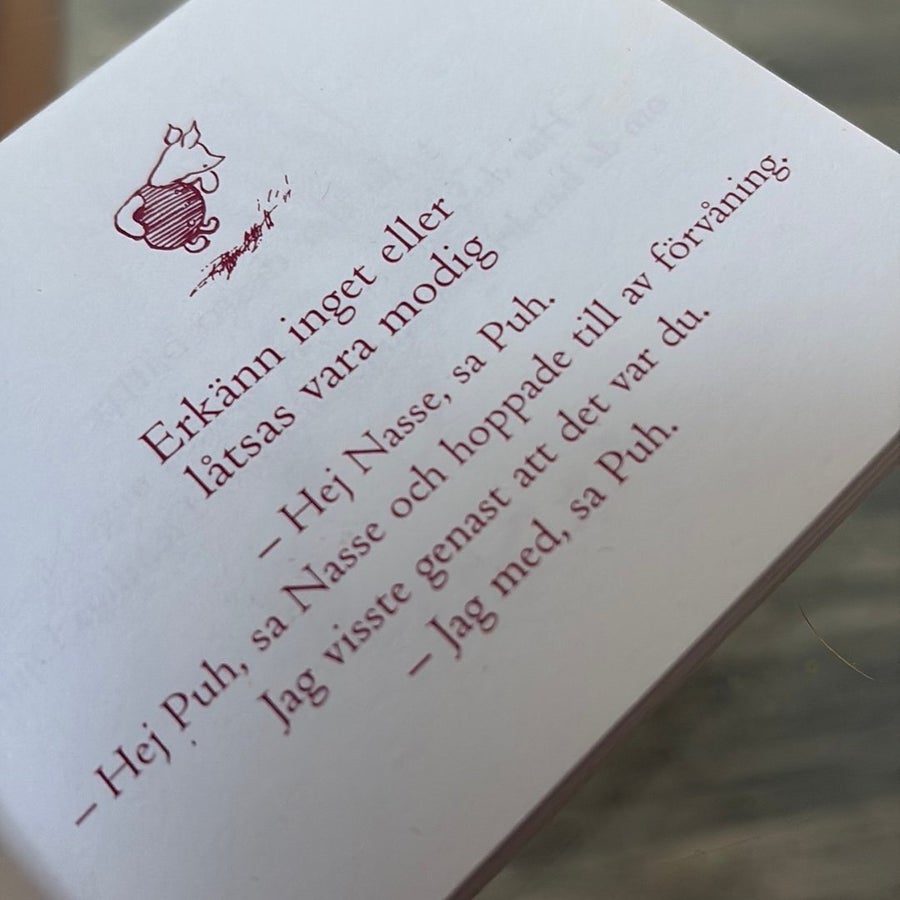 Erkänn inget eller
låtsas vara modig
– Hej Nasse, sa Puh.
– Hej Puh, sa Nasse och hoppade till av förvåning.
Jag visste genast att det var du.
– Jag med, sa Puh.